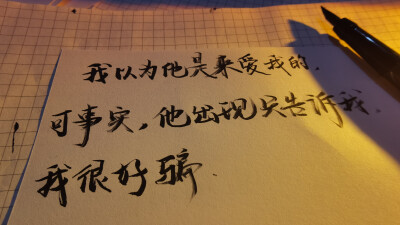 我以为他是来爱我的.
可事实,他出现只告诉我.
我很好骗.